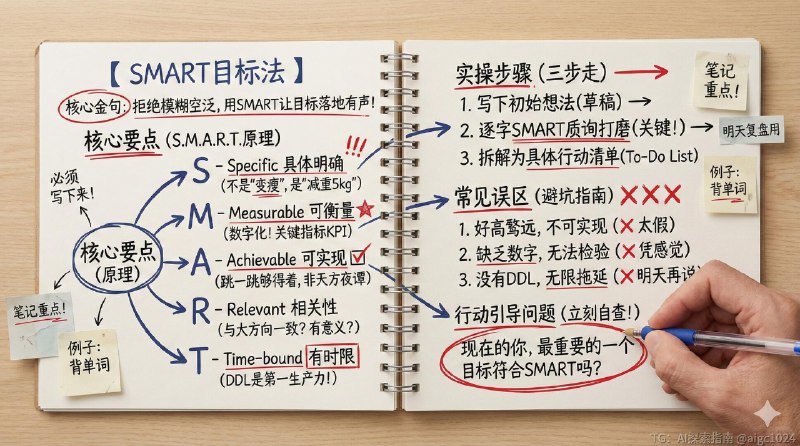 【SMART目标法】
核心金句: 拒绝模糊空泛, 用SMART让目标落地有声!
核心要点 (S.M.A.R.T.原理)
必须
写下来!
核心要点
(原理)
S - Specific 具体明确 !!!
(不是“变瘦”, 是“减重5kg”)
M - Measurable 可衡量
(数字化! 关键指标KPI)
A - Achievable 可实现
(跳一跳够得着, 非天方夜谭)
R - Relevant 相关性
(与大方向一致? 有意义?)
T - Time-bound 有时限
(DDL是第一生产力!)
笔记重点!
例子:
背单词
实操步骤 (三步走)
1. 写下初始想法(草稿)
2. 逐字SMART质询打磨(关键!)
3. 拆解为具体行动清单(To-Do List)
笔记
重点!
明天复盘用
例子:
背单词
常见误区 (避坑指南)
1. 好高骛远, 不可实现 (❌ 太假)
2. 缺乏数字, 无法检验 (❌ 凭感觉)
3. 没有DDL, 无限拖延 (❌ 明天再说
行动引导问题 (立刻自查!)
现在的你, 最重要的一个
目标符合SMART吗?
TG: AI探索指南 @aigc1024